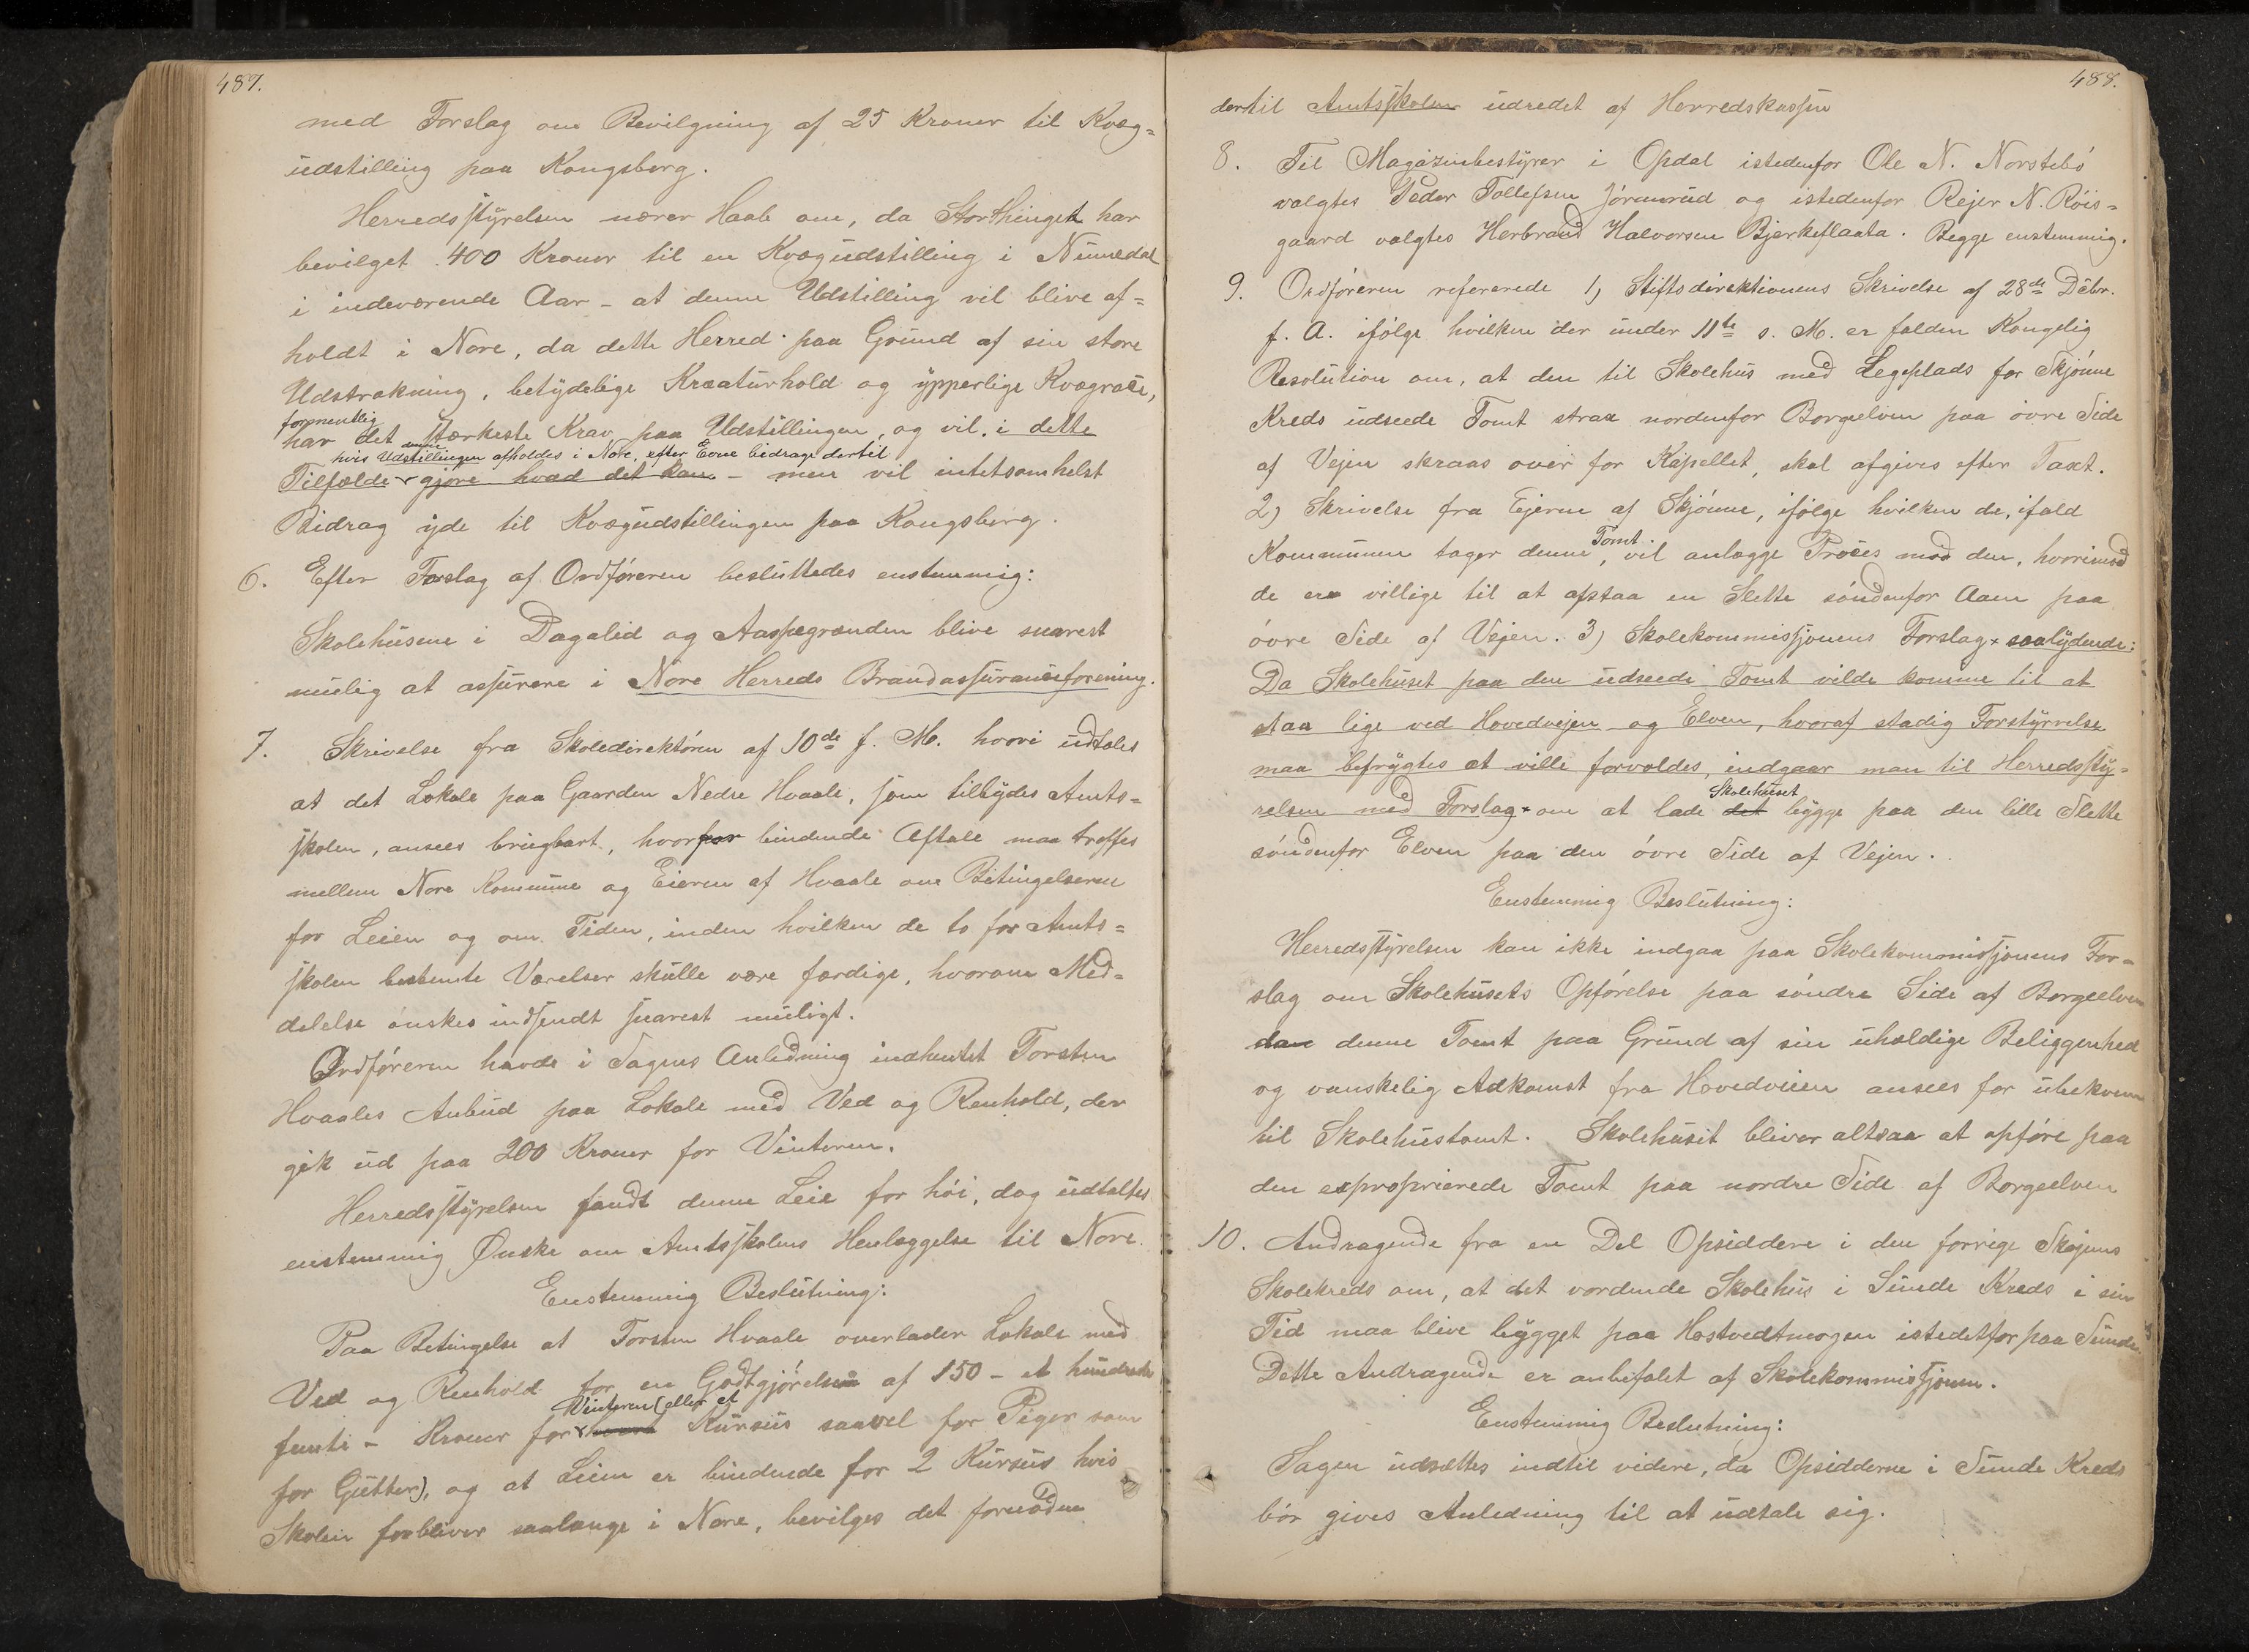 487.
med Forslag om Bevilgning af 25 Kroner til Kvæg-
udstilling paa Kongsberg.
Herredsstyrelsen nærer Haab om, da Storthinget har
bevilget 400 Kroner til en Kvægudstilling i Numedal
i indeværende Aar - at denne Udstilling vil blive af-
holdt i Nore, da dette Herred paa Grund af sin store
Udstrækning, betydelige Kreaturhold og ypperlige Kvægrace,
formentlig
har det stærkeste Krav paa Udstillingen, og vil i dette
hvis Udstillingen afholdes i Nore, efter Evne bidrage dertil
Tilfælde gjøre hvad det kan - men vil intetsomhelst
Bidrag yde til Kvægudstillingen paa Kongsberg.
6. Efter Forslag af Ordføreren besluttedes enstemmig:
Skolehusene i Dagalid og Aaspegrænden blive snarest
mulig at assurere i Nore Herreds Brandassuranceforening.
7. Skrivelse fra Skoledirektøren af 10de f. M. hvori udtales
at det Lokale paa Gaarden Nedre Hvaale, som tilbydes Amts-
skolen, ansees brugbart, hvorfor bindende Aftale maa træffes
mellem Nore Kommune og Eieren af Hvaale om Betingelserne
for Leien og om Tiden, inden hvilken de to for Amts-
skolen bestemte Værelser skulle være færdige, hvorom Med-
delelse ønskes indsendt snarest muligt.
Ordføreren havde i Sagens Anledning indhentet Torsten
Hvaales Anbud paa Lokale med Ved og Renhold, der
gik ud paa 200 Kroner for Vinteren.
Herredsstyrelsen fandt denne Leie for høi, dog udtaltes
enstemmig Ønske om Amtsskolens Henlæggelse til Nore.
Enstemmig Beslutning:
Paa Betingelse at Torsten Hvaale overlader Lokale med
Ved og Renhold for en Godtgjørelse af 150 - et hundrede
Vinteren (eller et
femti - Kroner for Kursus saavel for Piger som
for Gutter), og at Leien er bindende for 2 Kursus hvis
Skolen forbliver saalænge i Nore, bevilges det fornødne
488.
dertil Amtsskolen udredet af Herredskassen
8. Til Magazinbestyrer i Opdal istedenfor Ole N. Norstebø
valgtes Peder Tollefsen Jørenrud og istedenfor Rejer N. Røis-
gaard valgtes Herbrand Halvorsen Bjerkeflaata. Begge enstemmig.
9. Ordføreren refererede 1) Stiftsdirektionens Skrivelse af 28de Dcbr.
f. A. ifølge hvilken der under 11te s. M. er falden Kongelig
Resolution om, at den til Skolehus med Legeplads for Skjønne
Kreds udseede Tomt strax nordenfor Borgeelven paa øvre Side
af Vejen skraas over for Kapellet, skal afgives efter Taxt.
2) Skrivelse fra Ejerne af Skjønne, ifølge hvilken de, ifald
Tomt
Kommunen tager denne, vil anlægge Proces mod den, hvorimod
de ere villige til at afstaa en Slette søndenfor Aaen paa
øvre Side af Vejen. 3) Skolekommissjonens Forslag saalydende:
Da Skolehuset paa den udseede Tomt vilde komme til at
staa lige ved Hovedvejen og Elven, hvoraf stadig Forstyrrelse
maa befrygtes at ville forvoldes, indgaar man til Herredssty-
Skolehuset
relsen med Forslag om at lade det bygge paa den lille Slette
søndenfor Elven paa den øvre Side af Vejen.
Enstemmig Beslutning:
Herredsstyrelsen kan ikke indgaa paa Skolekommissjonens For-
slag om Skolehusets Opførelse paa søndre Side af Borgeelven
denne Tomt paa Grund af sin uheldige Beliggenhed
og vanskelig Adkomst fra Hovedveien ansees for ubekvem
til Skolehustomt. Skolehuset bliver altsaa at opføre paa
den exproprierede Tomt paa nordre Side af Borgeelven
10. Andragende fra en Del Opsiddere i den forrige Skjønne
Skolekreds om, at det vordende Skolehus i Sunde Kreds i sin
Tid maa blive bygget paa Hostvedtmogen istedetfor paa Sunde.
Dette Andragende er anbefalet af Skolekommissjonen.
Enstemmig Beslutning:
Sagen udsættes indtil videre, da Opsidderne i Sunde Kreds
bør gives Anledning til at udtale sig.